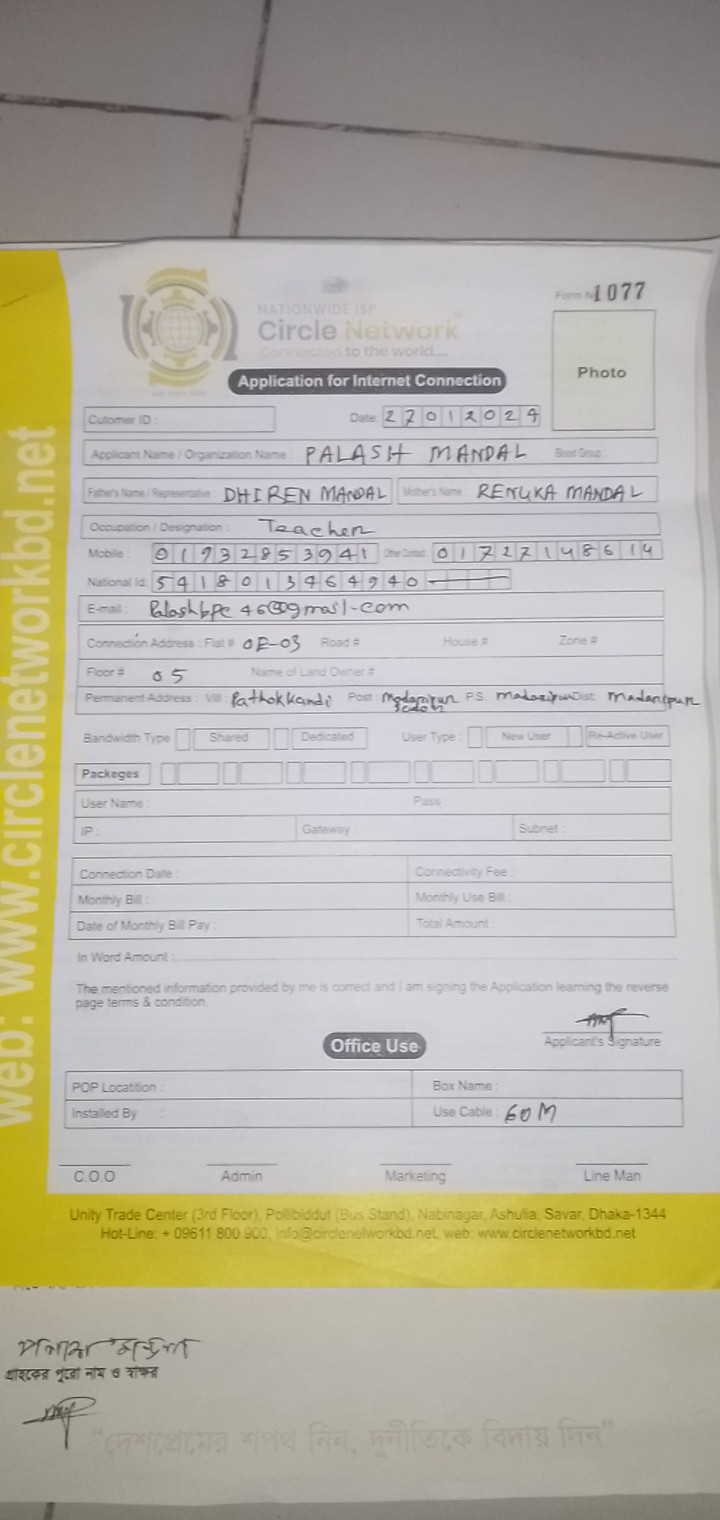 NATIONWIDE ISP
Circle Network
Connected to the world...
Form No 1077
Application for Internet Connection
Photo
Cutomer ID :
Date: 27012024
Applicant Name / Organization Name : PALASH MANDAL Blood Group :
Father's Name / Representative : DHIREN MANDAL Mother's Name : RENUKA MANDAL
Occupation / Designation : Teacher
Mobile : 01932853941 Other Contact: 01727148614
National Id: 5418013464940
E-mail : Palashbpc46@gmail.com
Connection Address : Flat # OE-03 Road # House # Zone #
Floor # 05 Name of Land Owner #
Permanent Address : Vill Pathakkandi Post : Madaripur Sadar P.S. Madaripur Dist: Madaripur
Bandwidth Type Shared Dedicated User Type : New User Re-Active User
Packeges
User Name : Pass :
IP : Gateway : Subnet :
Connection Date : Connectivity Fee :
Monthly Bill : Monthly Use Bill :
Date of Monthly Bill Pay : Total Amount :
In Word Amount :
The mentioned information provided by me is correct and I am signing the Application learning the reverse
page terms & condition.
Applicant's Signature
Office Use
POP Locatition : Box Name :
Installed By : Use Cable : 60M
C.O.O Admin Marketing Line Man
Unity Trade Center (3rd Floor), Pollibiddut (Bus Stand), Nabinagar, Ashulia, Savar, Dhaka-1344
Hot-Line: + 09611 800 900, info@circlenetworkbd.net, web: www.circlenetworkbd.net
web: www.circlenetworkbd.net
পলাশ মন্ডল
গ্রাহকের পুরো নাম ও স্বাক্ষর
“দেশপ্রেমের শপথ নিন, দুর্নীতিকে বিদায় দিন”